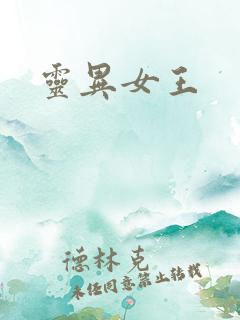 靈異女王
德林克
未經同意禁止轉載